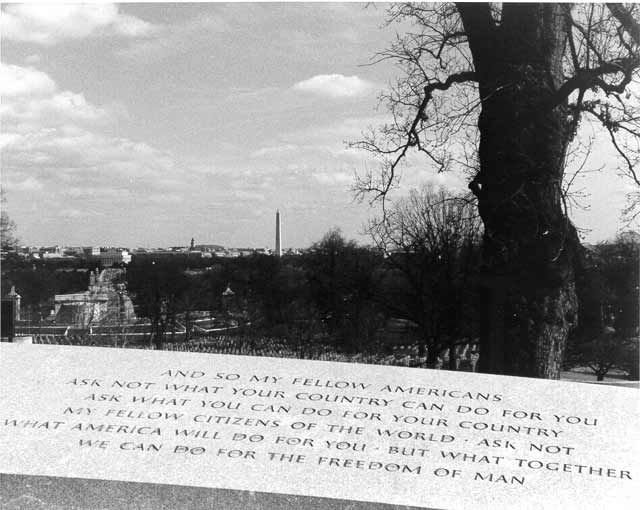 AND SO MY FELLOW AMERICANS
ASK NOT WHAT YOUR COUNTRY CAN DO FOR YOU
ASK WHAT YOU CAN DO FOR YOUR COUNTRY
MY FELLOW CITIZENS OF THE WORLD · ASK NOT
WHAT AMERICA WILL DO FOR YOU · BUT WHAT TOGETHER
WE CAN DO FOR THE FREEDOM OF MAN